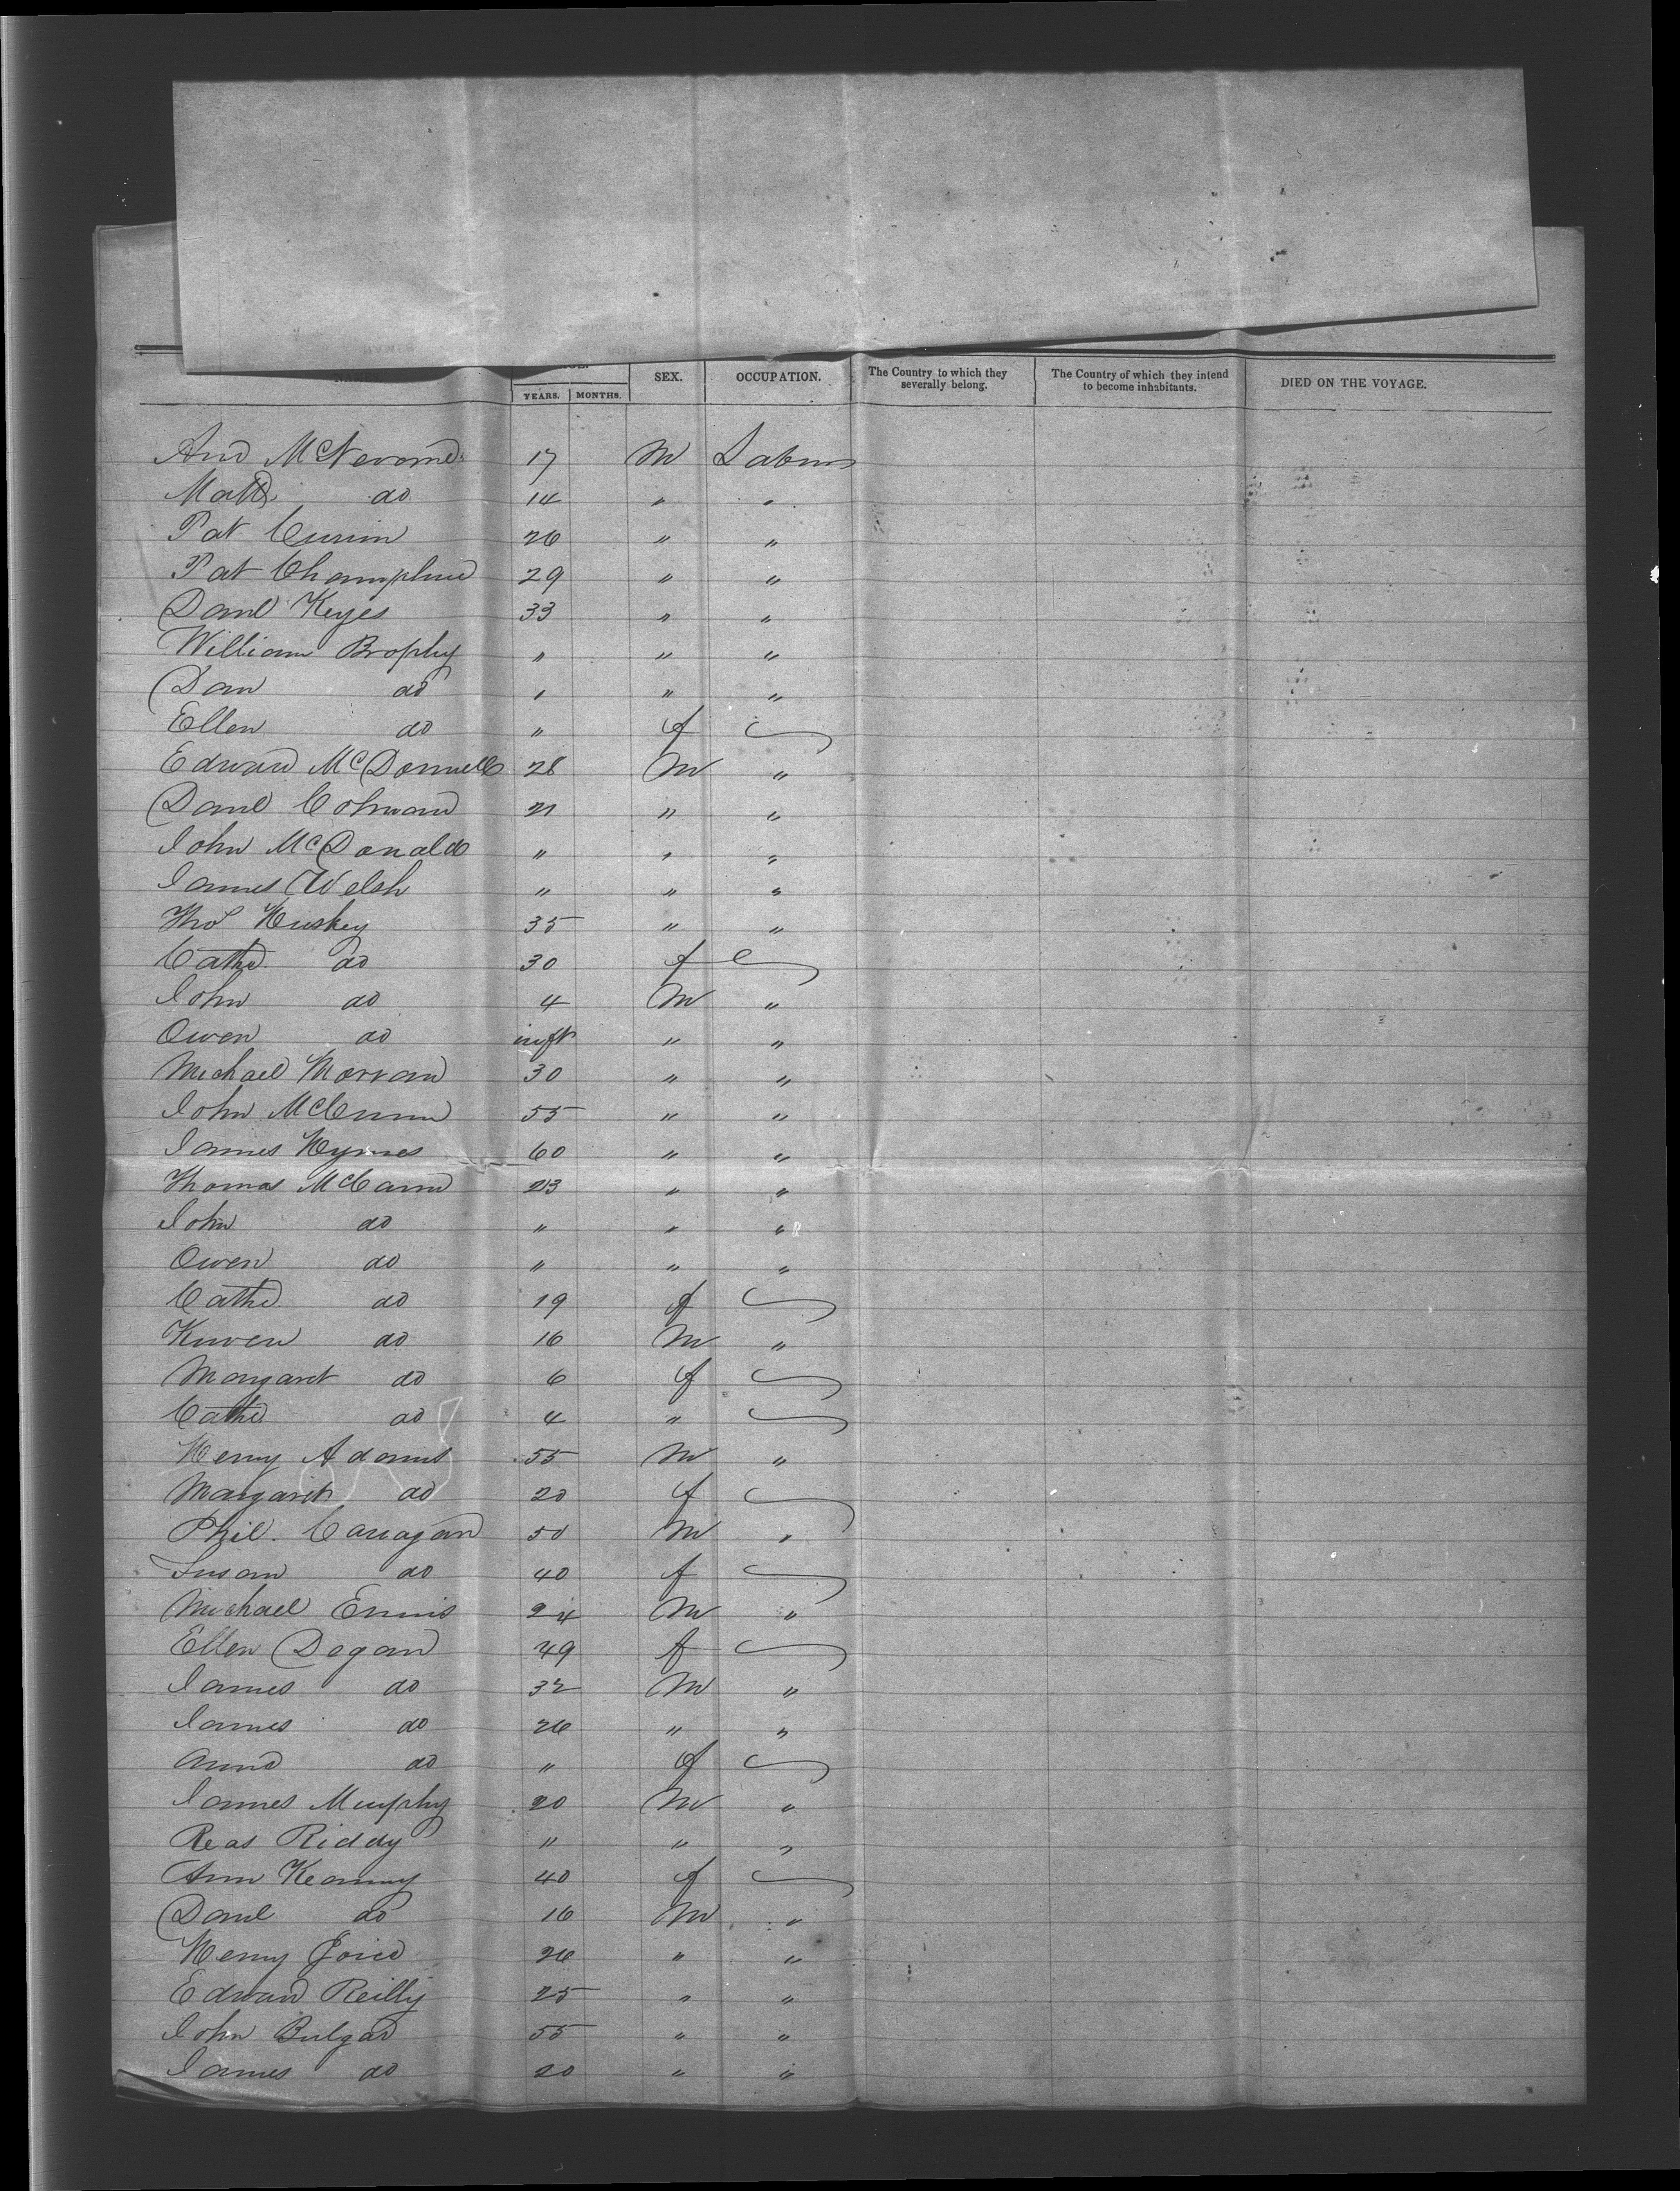 SEX. OCCUPATION. The Country to which they severally belong. The Country of which they intend to become inhabitants. DIED ON THE VOYAGE.
YEARS. MONTHS.
And 17 M Labour
Matt do 14 " "
Pat 26 " "
Pat 29 " "
Danl Keyes 33 " "
William Brophy " " "
Dan do " " "
Ellen do " f
Edward McDonnell 28 M "
Danl Colman 21 " "
John McDonald " " "
James Welsh " " "
Thos Huskey 35 " "
Cathe do 30 f
John do 4 M "
Owen do inft " "
Michael Morran 30 " "
John 55 " "
James Hynes 60 " "
Thomas McCann 23 " "
John do " " "
Owen do " " "
Cathe do 19 f
do 16 M "
Margaret do 6 f
Cathe do 4 "
Henry Adams 55 M "
Margaret do 20 f
Phil. 50 M "
Susan do 40 f
Michael Ennis 24 M "
Ellen Degan 49 f
James do 32 M "
James do 26 " "
Anne do " f
James Murphy 20 M "
Riddy " " "
Ann Kearney 40 f
Danl do 16 M "
Henry Joice 26 " "
Edward Reilly 25 " "
John Bulgar 55 " "
James do 20 " "